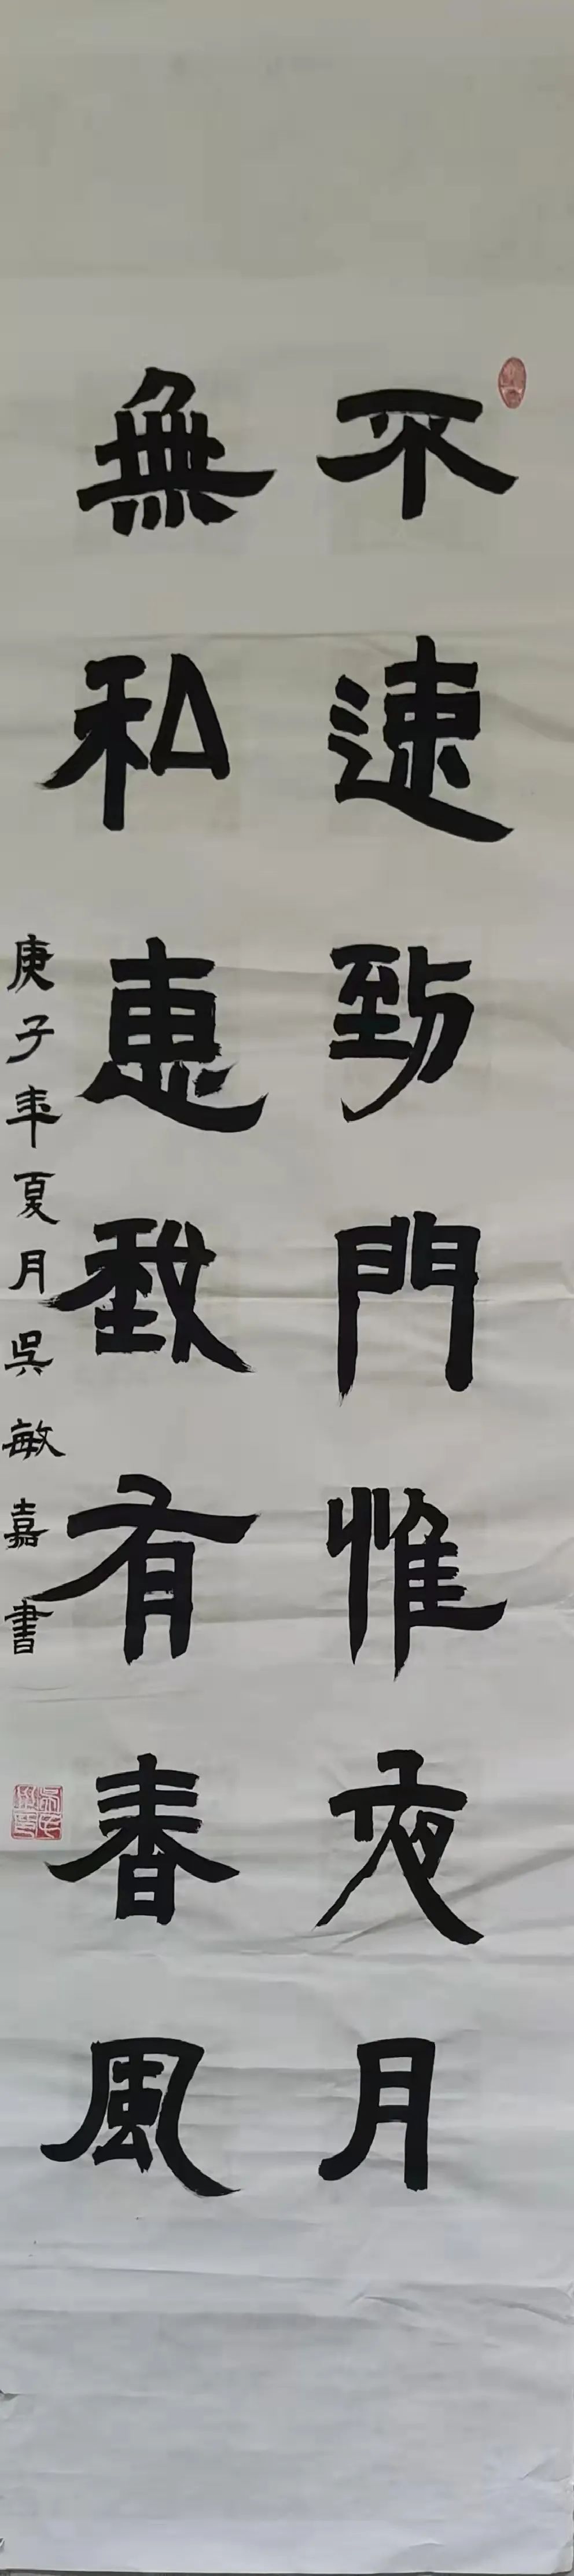 不速到門惟夜月
無私惠我有春風
庚子年夏月吳敏嘉書